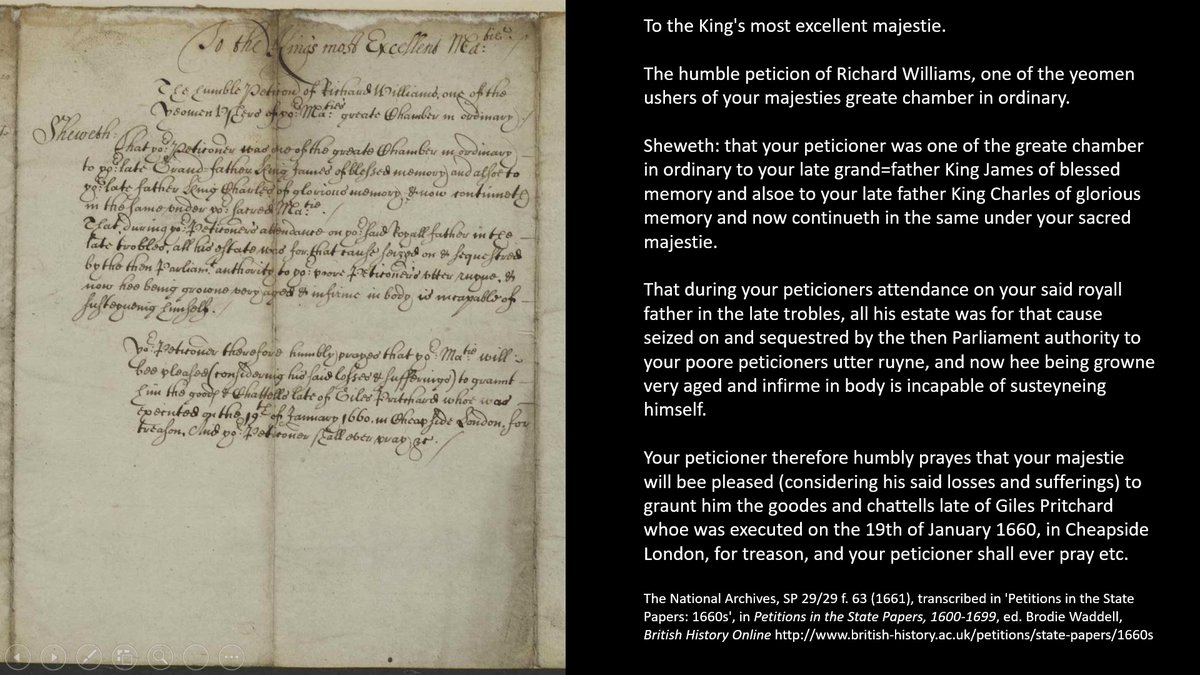 To the King's most Excellent Ma:tie
The humble Peticon of Richard Williams, one of the
Yeomen Ushers of yor: Maties greate Chamber in ordinary
Sheweth:
That yor: Peticoner was one of the greate Chamber in ordinary
to yor: late Grand=father King James of blessed memory and alsoe to
yor: late father King Charles of glorious memory, & now continueth
in the same under yor: sacred Ma:tie.
That, during yor: Peticoners attendance on yor: said Royall father in the
late trobles, all his estate was for that cause seized on & sequestred
by the then Parliamt. authority to yor: poore Peticoners utter ruyne, &
now hee being growne very aged & infirme in body is incapable of
susteyneing himself.
Yor: Peticoner therefore humbly prayes that yor: Matie will
bee pleased (considering his said losses & sufferings) to graunt
him the goods & Chattells late of Giles Pritchard whoe was
executed on the 19th of January 1660. in Cheapside London, for
treason, And yor: Peticoner shall ever pray &c.
To the King's most excellent majestie.
The humble peticion of Richard Williams, one of the yeomen
ushers of your majesties greate chamber in ordinary.
Sheweth: that your peticioner was one of the greate chamber
in ordinary to your late grand=father King James of blessed
memory and alsoe to your late father King Charles of glorious
memory and now continueth in the same under your sacred
majestie.
That during your peticioners attendance on your said royall
father in the late trobles, all his estate was for that cause
seized on and sequestred by the then Parliament authority to
your poore peticioners utter ruyne, and now hee being growne
very aged and infirme in body is incapable of susteyneing
himself.
Your peticioner therefore humbly prayes that your majestie
will bee pleased (considering his said losses and sufferings) to
graunt him the goodes and chattells late of Giles Pritchard
whoe was executed on the 19th of January 1660, in Cheapside
London, for treason, and your peticioner shall ever pray etc.
The National Archives, SP 29/29 f. 63 (1661), transcribed in 'Petitions in the State
Papers: 1660s', in Petitions in the State Papers, 1600-1699, ed. Brodie Waddell,
British History Online http://www.british-history.ac.uk/petitions/state-papers/1660s